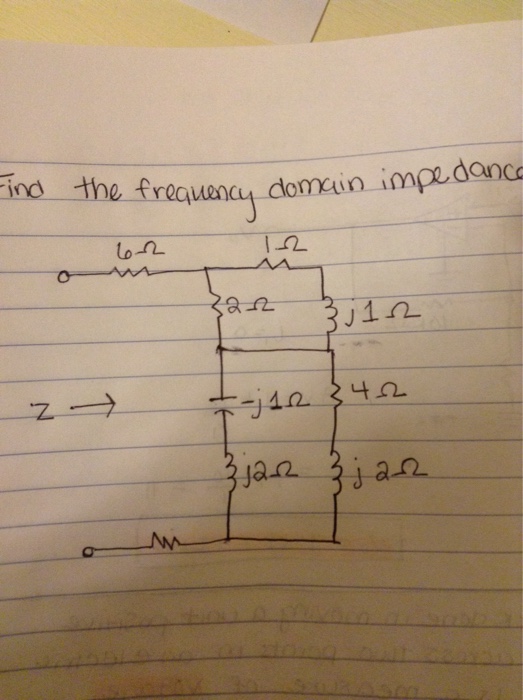 Find the frequency domain impedance
6Ω 1Ω
2Ω j1Ω
Z → -j1Ω 4Ω
j2Ω j2Ω